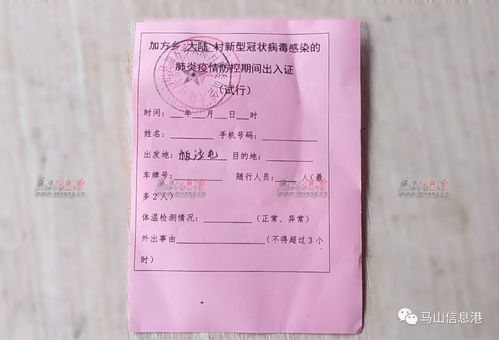 加方乡 大陆 村新型冠状病毒感染的
肺炎疫情防控期间出入证
（试行）
时间：___年___月___日___时
姓名：________ 手机号码：________
出发地： 目的地：________
车牌号：________ 随行人员：___人（最
多2人）
体温检测情况：________（正常、异常）
外出事由________________（不得超过3小
时）
马山信息港